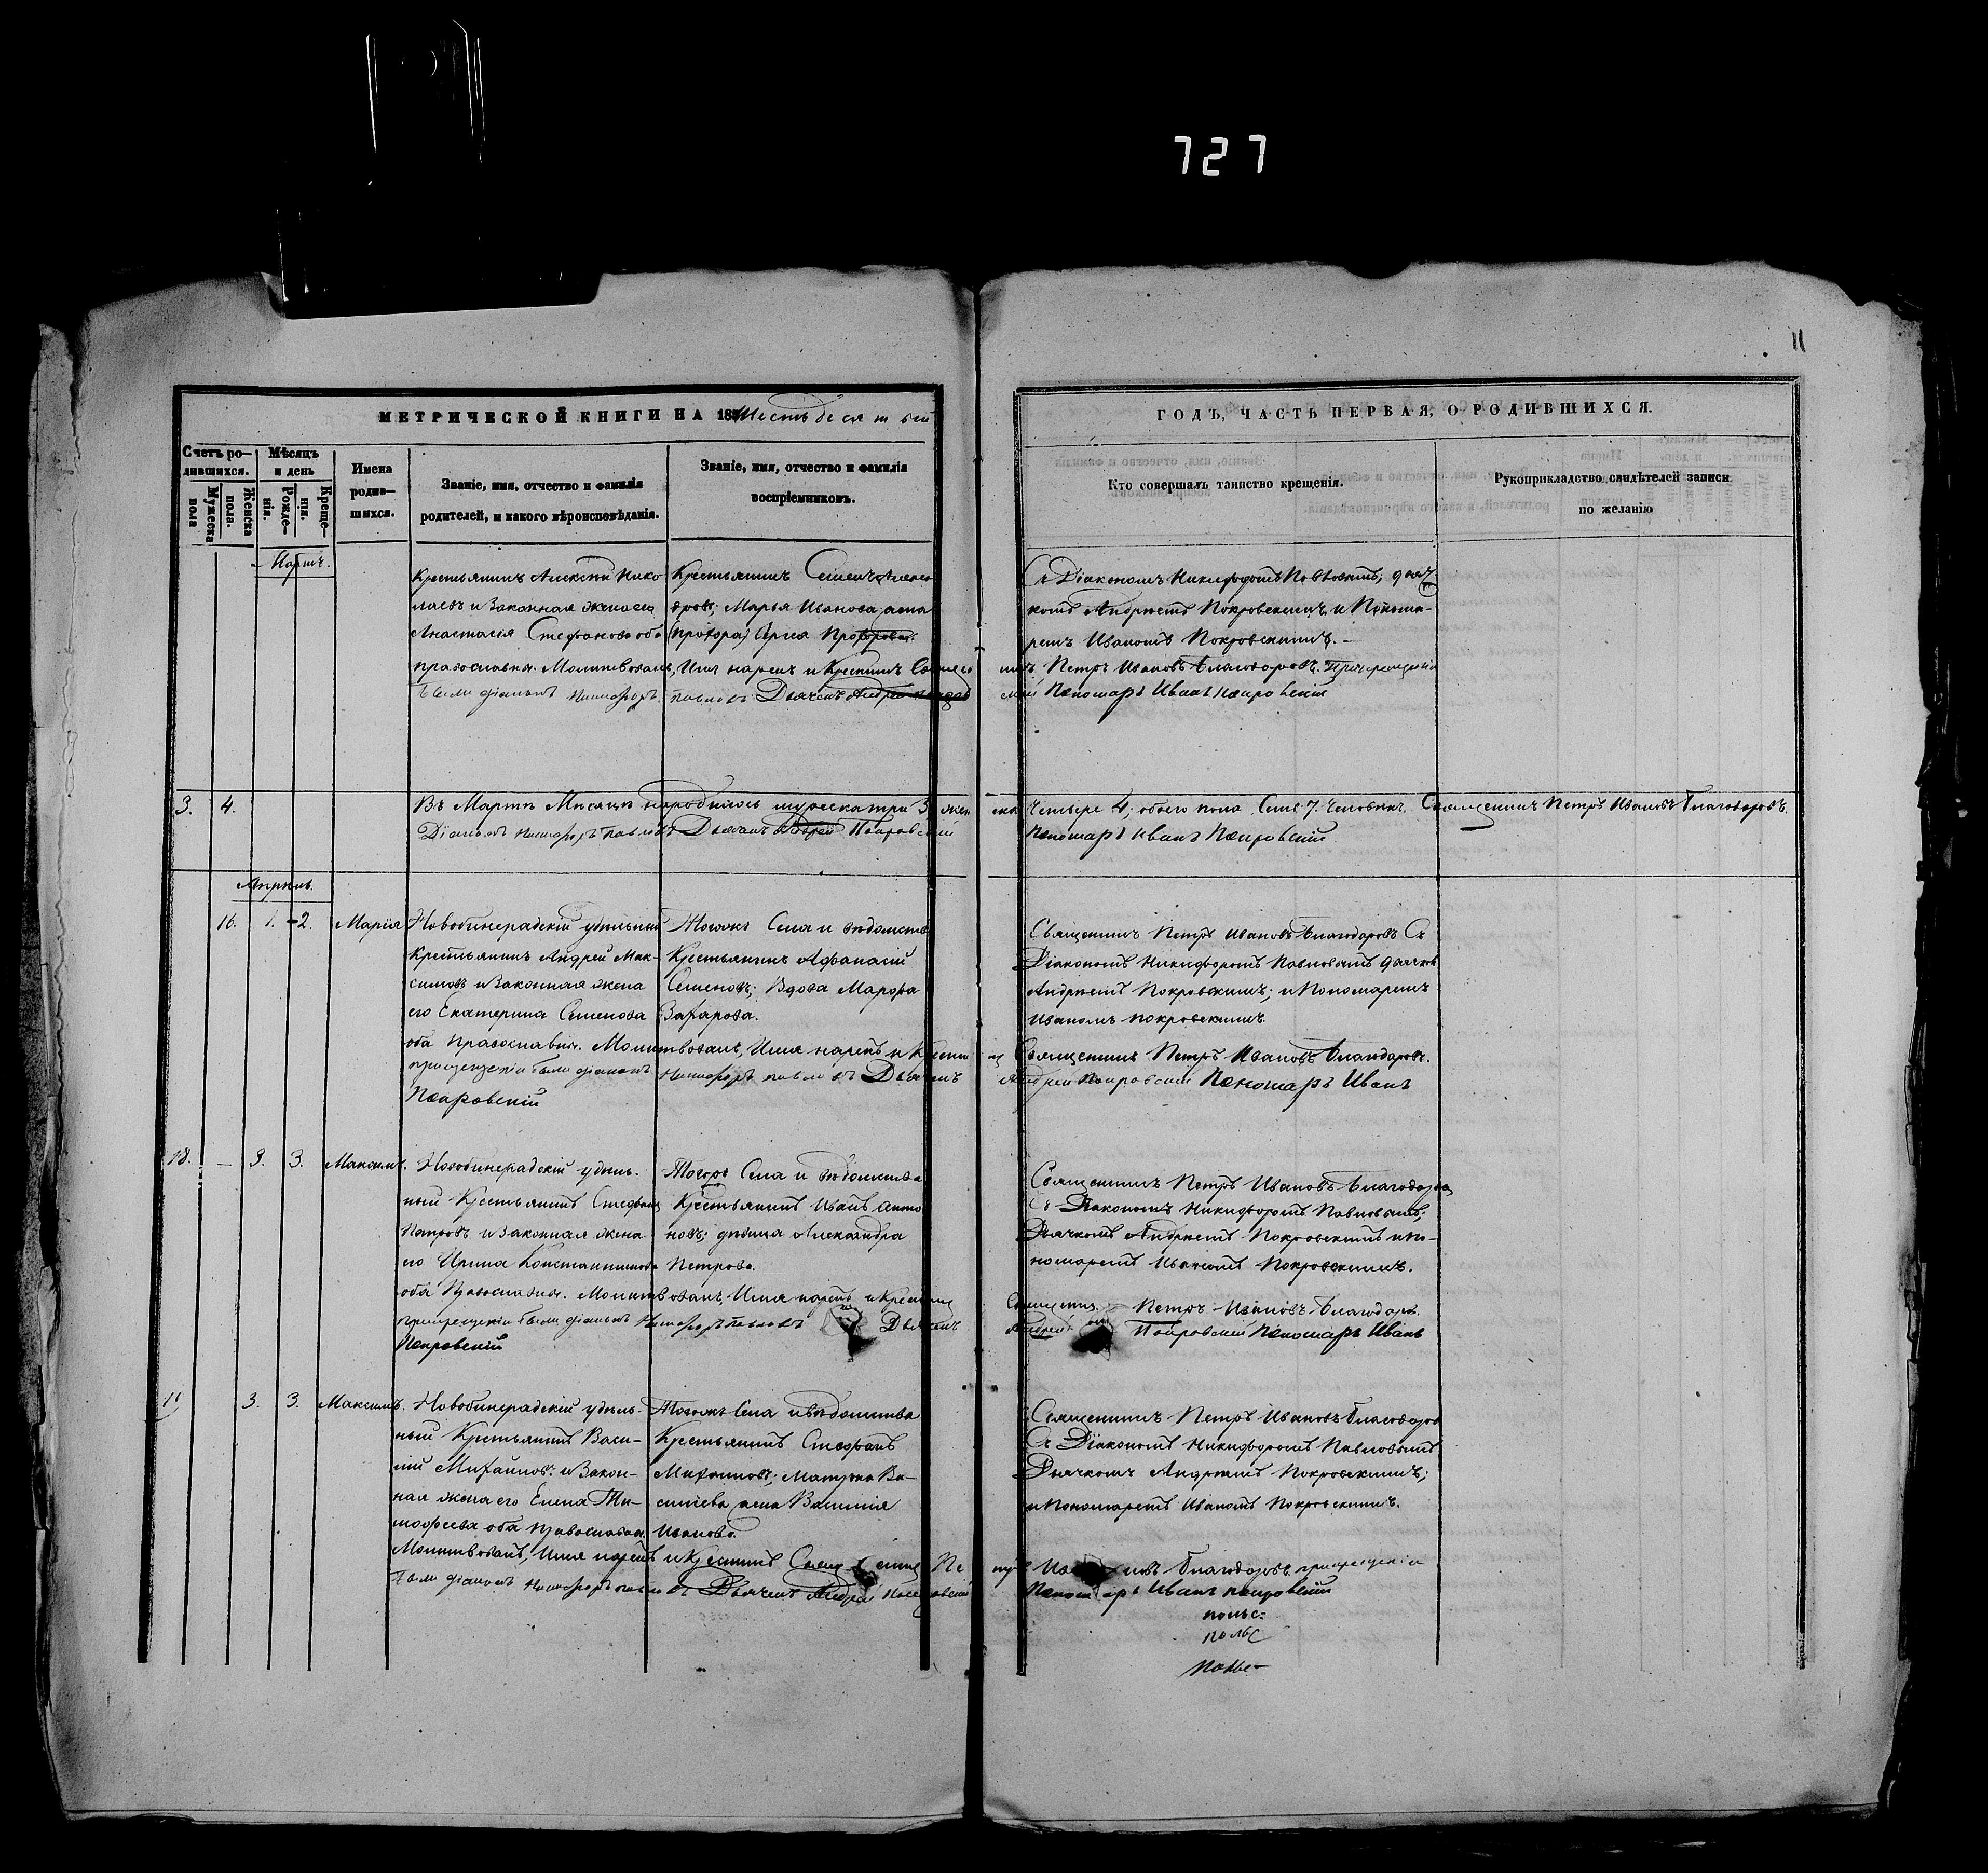 727
11
МЕТРИЧЕСКОЙ КНИГИ НА 18 Шестьдесятый
ГОДЪ, ЧАСТЬ ПЕРВАЯ, О РОДИВШИХСЯ.
Счетъ ро-
дившихся.
Мужеска
пола
Женска
пола.
Мѣсяцъ
и день
Рожде-
нія.
Креще-
нія.
Имена
родив-
шихся.
Званіе, имя, отчество и фамилія
родителей, и какого вѣроисповѣданія.
Званіе, имя, отчество и фамилія
воспріемниковъ.
Кто совершалъ таинство крещенія.
Рукоприкладство свидѣтелей записи
по желанію
Мартъ.
Крестьянинъ Алексѣй Нико-
лаевъ и Законная жена его
Анастасія Стефанова оба
православны. Молитвовалъ, Имя нарекъ и Крестилъ
были діаконъ Никифоръ Павловъ Дьячекъ Андрей
Крестьянинъ Семенъ
Марья Иванова
Съ Діакономъ Никифоромъ Павловымъ; дьяч-
комъ Андреемъ Покровскимъ и Понома-
ремъ Иваномъ Покровскимъ.
Петръ Ивановъ Благодаровъ. При крещеніи
Пономарь Иванъ Покровскій
3. 4. Въ Мартѣ Мѣсяцѣ народилось мужеска три 3, жен
ска Четыре 4; обоего пола Семь 7. Человѣкъ. Священникъ Петръ Ивановъ Благодаровъ.
Діаконъ Никифоръ Павловъ Дьячекъ Андрей Покровскій
Пономарь Иванъ Покровскій
Апрѣль.
16. 1. 2. Марія
Новобинерадскій удѣльный
Крестьянинъ Андрей Мак-
симовъ и Законная жена
его Екатерина Семенова
оба Православны. Молитвовалъ, Имя нарекъ и Крестилъ
при крещеніи были діаконъ Никифоръ Павловъ Дьячекъ
Покровскій
Тогожъ Села и вѣдомства
Крестьянинъ Афанасій
Семеновъ; Вдова Марфа
Захарова.
Священникъ Петръ Ивановъ Благодаровъ Съ
Діакономъ Никифоромъ Павловымъ дьячком
Андреемъ Покровскимъ; и Пономаремъ
Иваномъ Покровскимъ.
Священникъ Петръ Ивановъ Благодаровъ.
Андрей Покровскій Пономарь Иванъ
18. - 3. 3. Максимъ.
Новобинерадскій удѣль-
ный Крестьянинъ Стефанъ
Петровъ и Законная жена
его Ирина Константинова
оба Православны. Молитвовалъ, Имя нарекъ и Крестилъ
при крещеніи были діаконъ Никифоръ Павловъ Дьячекъ
Покровскій
Тогожъ Села и вѣдомства
Крестьянинъ Иванъ Анто
новъ; дѣвица Александра
Петрова.
Священникъ Петръ Ивановъ Благодаровъ
Съ Діакономъ Никифоромъ Павловымъ;
Дьячкомъ Андреемъ Покровскимъ и по-
номаремъ Иваномъ Покровскимъ.
Священникъ Петръ Ивановъ Благодаровъ.
Андрей Покровскій Пономарь Иванъ
3. 3. Максимъ.
Новобинерадскій удѣль-
ный Крестьянинъ Васи-
лій Михайловъ и Закон-
ная жена его Елена Ти-
мофеева оба православны
Молитвовалъ, Имя нарекъ и Крестилъ Священникъ Пе
были діаконъ Никифоръ Павловъ Дьячекъ Андрей Покровскій
Тогожъ Села и вѣдомства
Крестьянинъ Стефанъ
Михайловъ; Матрона Ва-
сильева жена Василія
Иванова.
Священникъ Петръ Ивановъ Благодаровъ
Съ Діакономъ Никифоромъ Павловымъ
Дьячкомъ Андреемъ Покровскимъ;
и Пономаремъ Иваномъ Покровскимъ.
тръ Ивановъ Благодаровъ при крещеніи
Пономарь Иванъ Покровскій